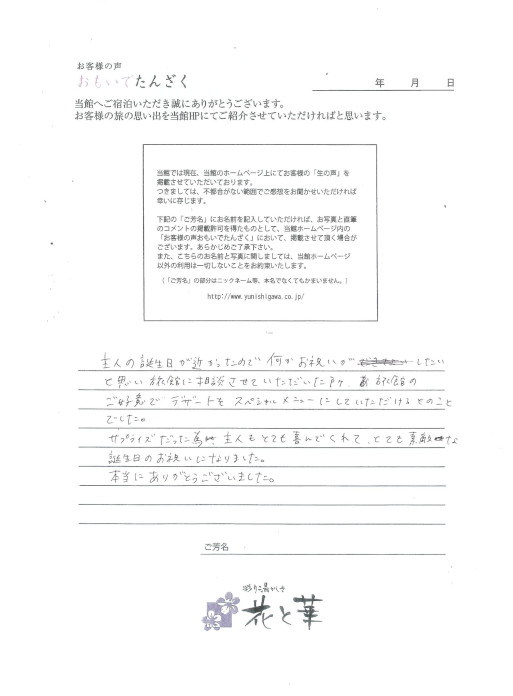 お客様の声
おもいでたんざく
年 月 日
当館へご宿泊いただき誠にありがとうございます。
お客様の旅の思い出を当館HPにてご紹介させていただければと思います。
当館では現在、当館のホームページ上にてお客様の「生の声」を
掲載させていただいております。
つきましては、不都合がない範囲でご感想をお聞かせいただければ
幸いに存じます。
下記の「ご芳名」にお名前を記入していただければ、お写真と直筆
のコメントの掲載許可を得たものとして、当館ホームページ内の
「お客様の声おもいでたんざく」において、掲載させて頂く場合が
ございます。あらかじめご了承下さい。
また、こちらのお名前と写真に関しましては、当館ホームページ
以外の利用は一切しないことをお約束いたします。
(「ご芳名」の部分はニックネーム等、本名でなくてもかまいません。)
http://www.yunishigawa.co.jp/
主人の誕生日が近かったので何かお祝いがしたい
と思い旅館に相談させていただいた所、旅館の
ご好意でデザートをスペシャルメニューにしていただけるとのこと
でした。
サプライズだった為、主人もとても喜んでくれて、とても素敵な
誕生日のお祝いになりました。
本当にありがとうございました。
ご芳名
彩り湯かしき
花と華